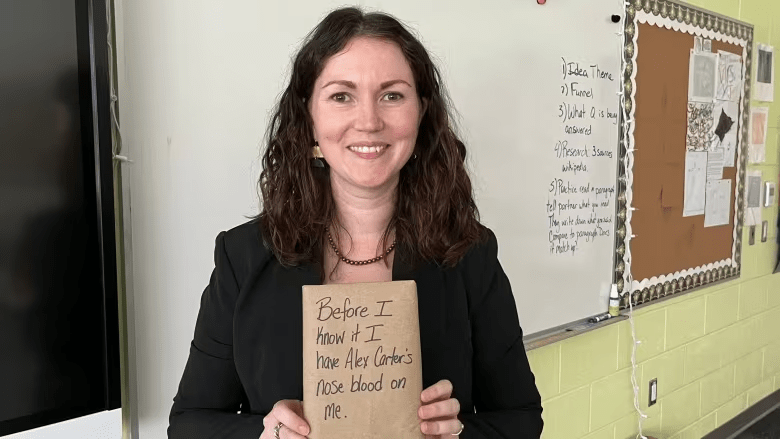 Before I
know it I
have Alex Carter's
nose blood on
me.
1) Idea Theme
2) Funnel
3) What Q is being
answered
4) Research: 3 sources
wikipedia
5) Practice read a paragraph
tell partner what you read
They write down what you said
Compare to paragraph. Does
it match up?